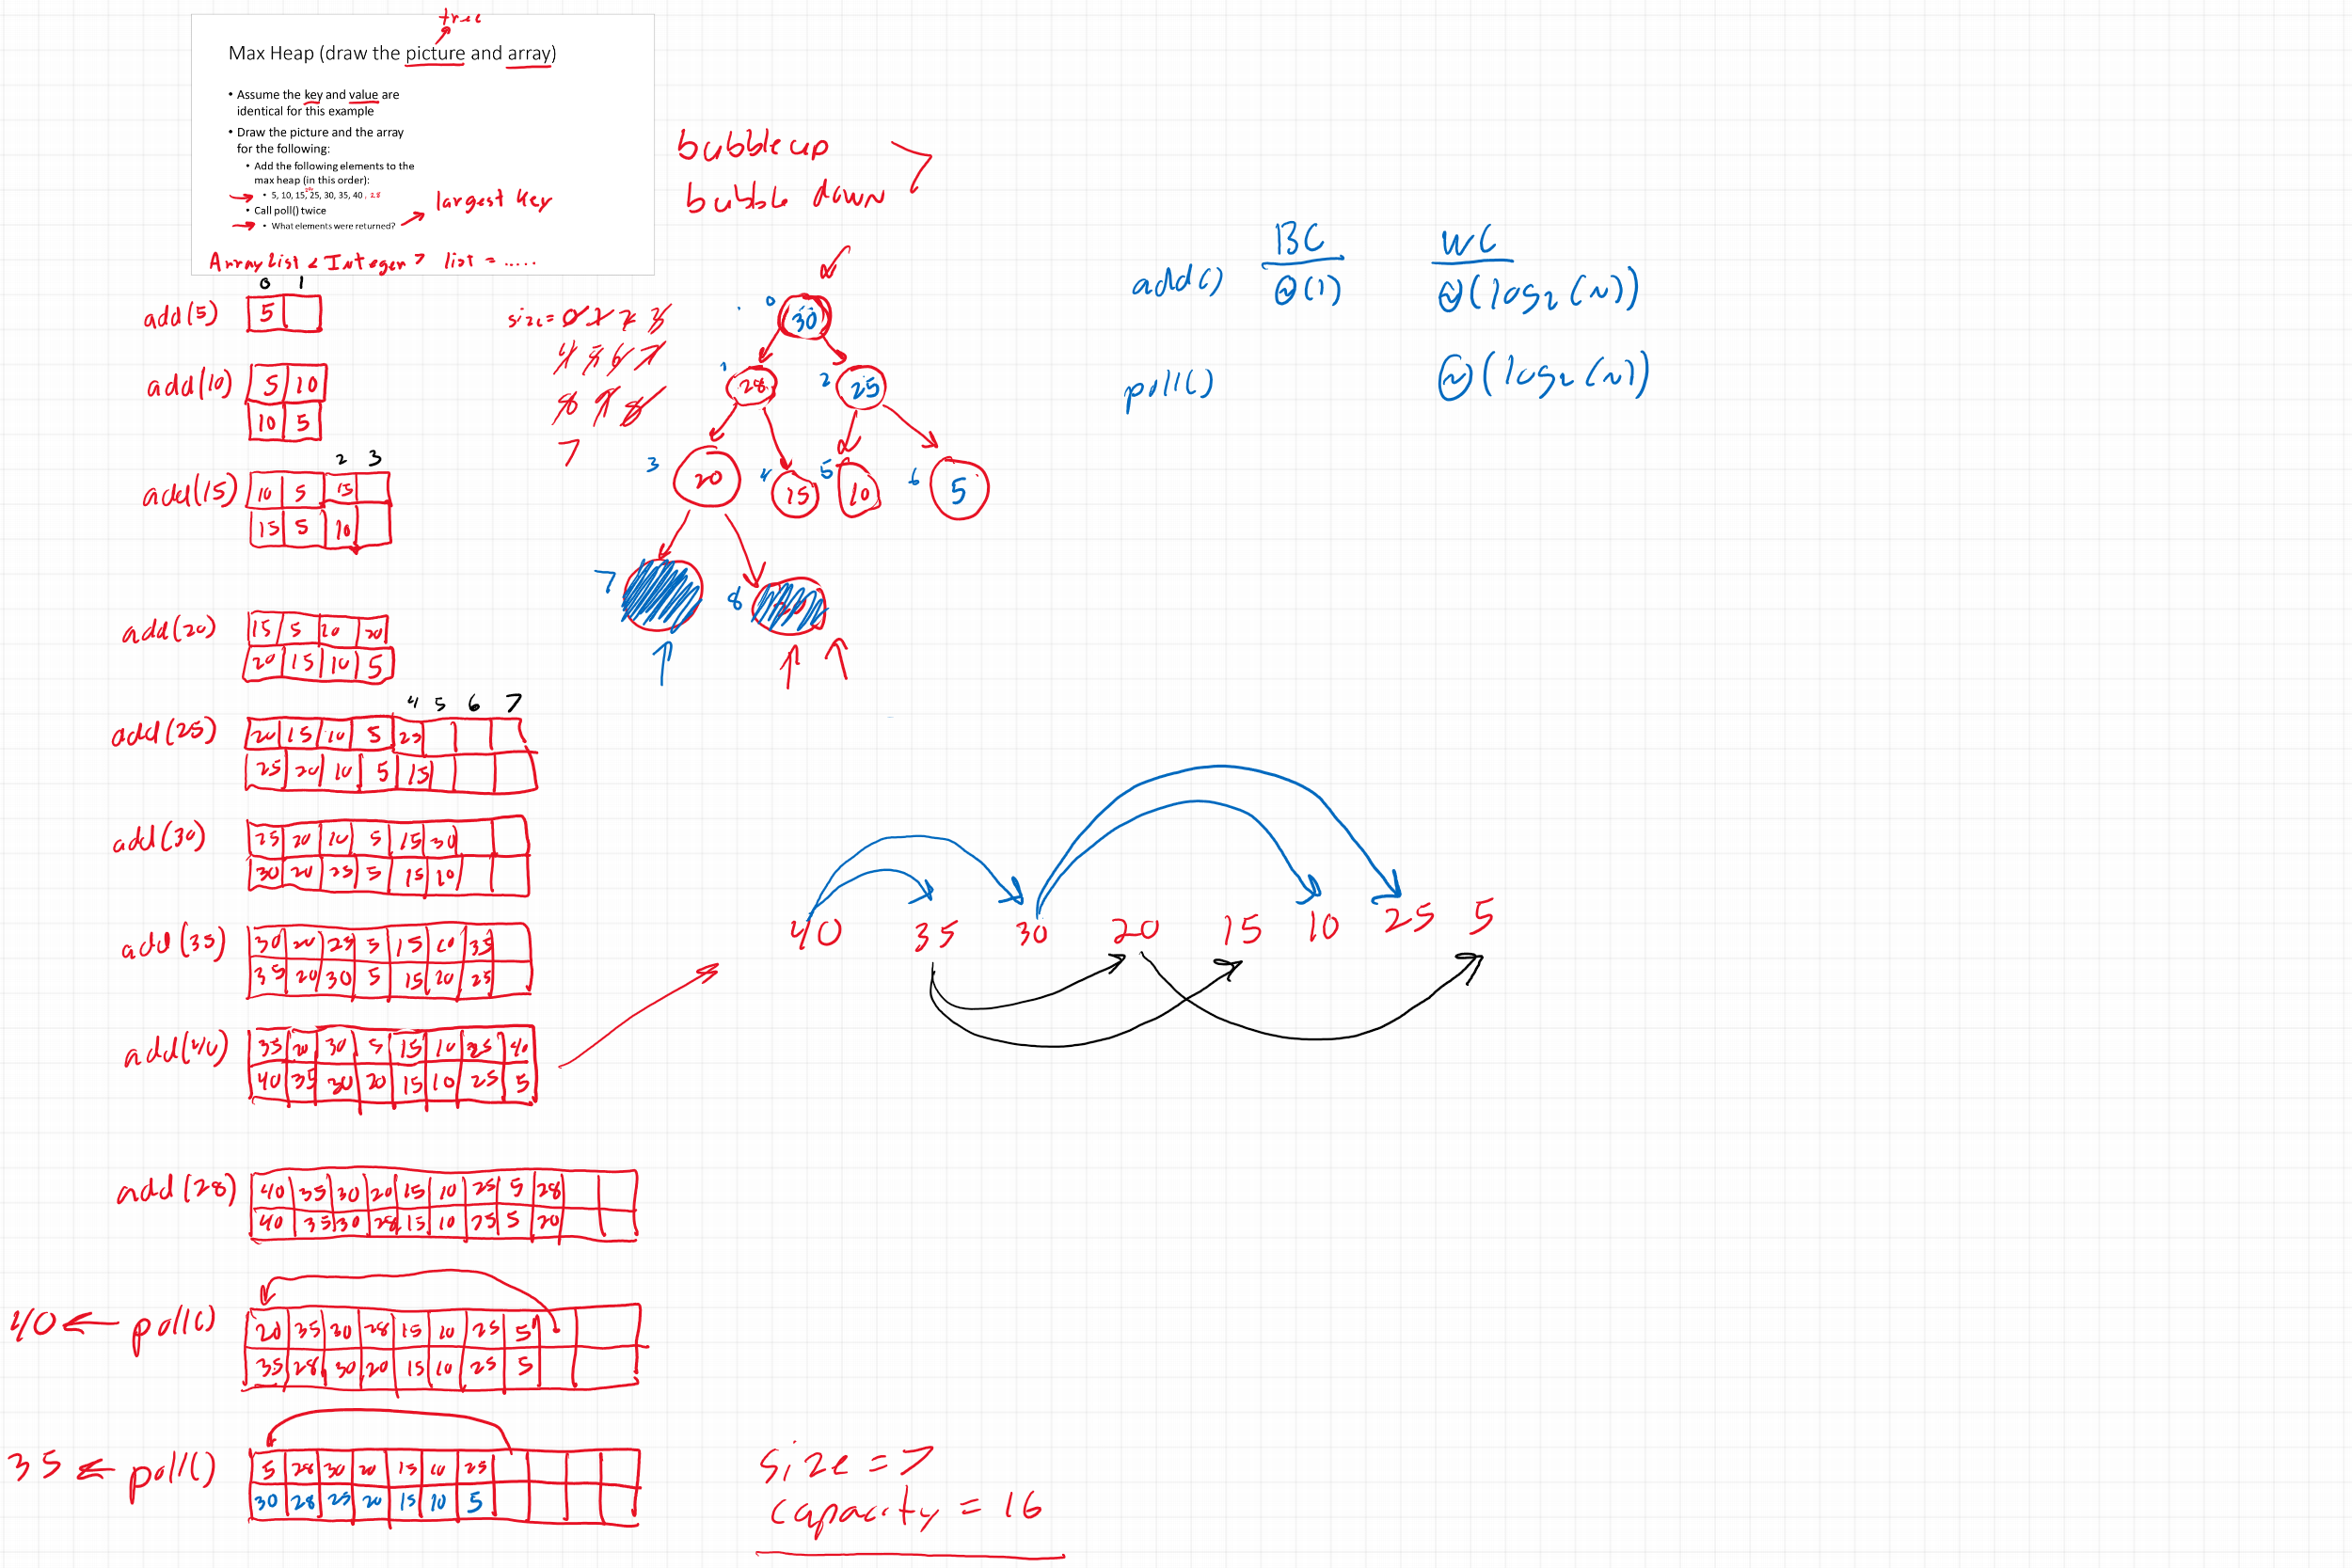 tree
Max Heap (draw the picture and array)
• Assume the key and value are
identical for this example
• Draw the picture and the array
for the following:
• Add the following elements to the
max heap (in this order):
• 5, 10, 15, 20, 25, 30, 35, 40, 28
• Call poll() twice
• What elements were returned?
largest key
ArrayList < Integer > list = .....
bubble up
bubble down
BC WC
add() Θ(1) Θ(log2(N))
poll() Θ(log2(N))
0 1
add(5) 5
add(10) 5 10
10 5
2 3
add(15) 10 5 15
15 5 10
add(20) 15 5 10 20
20 15 10 5
4 5 6 7
add(25) 20 15 10 5 25
25 20 10 5 15
add(30) 25 20 10 5 15 30
30 20 25 5 15 10
add(35) 30 20 25 5 15 10 35
35 20 30 5 15 10 25
add(40) 35 20 30 5 15 10 25 40
40 35 30 20 15 10 25 5
add(28) 40 35 30 20 15 10 25 5 28
40 35 30 28 15 10 25 5 20
40 ← poll() 20 35 30 28 15 10 25 5
35 28 30 20 15 10 25 5
35 ← poll() 5 28 30 20 15 10 25
30 28 25 20 15 10 5
size = 0 1 2 3
4 5 6 7
8 9 8
7
0 30
1 28 2 25
3 20 4 15 5 10 6 5
7 8
40 35 30 20 15 10 25 5
size = 7
capacity = 16